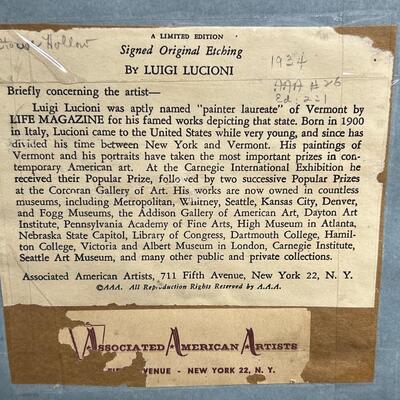 A LIMITED EDITION
Signed Original Etching
BY LUIGI LUCIONI
Hollow
1934
AAA #26
Ed. 221
Briefly concerning the artist—
Luigi Lucioni was aptly named "painter laureate" of Vermont by
LIFE MAGAZINE for his famed works depicting that state. Born in 1900
in Italy, Lucioni came to the United States while very young, and since has
divided his time between New York and Vermont. His paintings of
Vermont and his portraits have taken the most important prizes in con-
temporary American art. At the Carnegie International Exhibition he
received their Popular Prize, followed by two successive Popular Prizes
at the Corcoran Gallery of Art. His works are now owned in countless
museums, including Metropolitan, Whitney, Seattle, Kansas City, Denver,
and Fogg Museums, the Addison Gallery of American Art, Dayton Art
Institute, Pennsylvania Academy of Fine Arts, High Museum in Atlanta,
Nebraska State Capitol, Library of Congress, Dartmouth College, Hamil-
ton College, Victoria and Albert Museum in London, Carnegie Institute,
Seattle Art Museum, and many other public and private collections.
Associated American Artists, 711 Fifth Avenue, New York 22, N. Y.
©AAA. All Reproduction Rights Reserved by A.A.A.
ASSOCIATED AMERICAN ARTISTS
AVENUE - NEW YORK 22, N. Y.